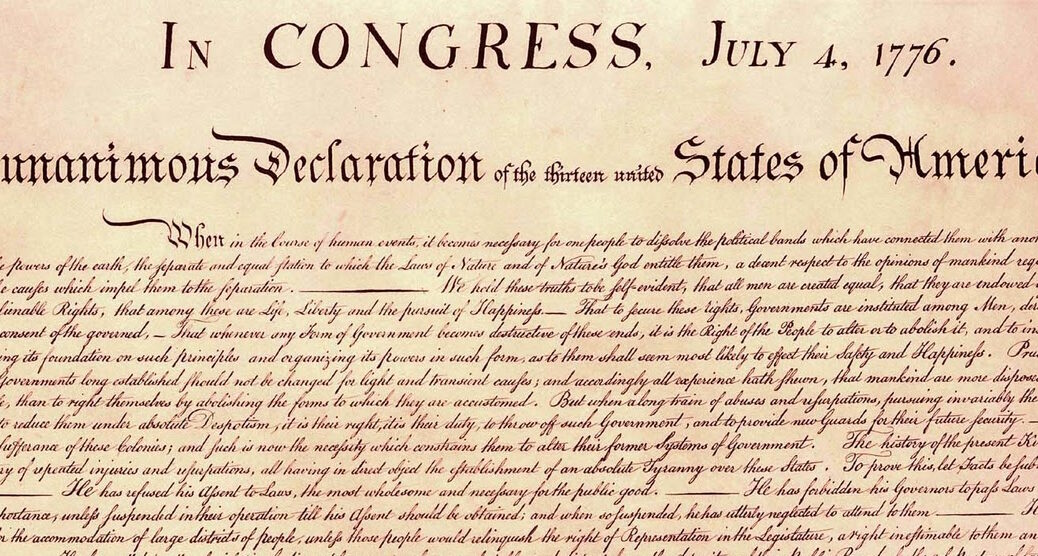 In CONGRESS, July 4, 1776.
unanimous Declaration of the thirteen united States of Ameri
When in the Course of human events, it becomes necessary for one people to dissolve the political bands which have connected them with ano
e powers of the earth, the separate and equal station to which the Laws of Nature and of Nature's God entitle them, a decent respect to the opinions of mankind req
e causes which impel them to the separation. — We hold these truths to be self-evident, that all men are created equal, that they are endowed
lienable Rights, that among these are Life, Liberty and the pursuit of Happiness. — That to secure these rights, Governments are instituted among Men, der
consent of the governed, — That whenever any Form of Government becomes destructive of these ends, it is the Right of the People to alter or to abolish it, and to in
ing its foundation on such principles and organizing its powers in such form, as to them shall seem most likely to effect their Safety and Happiness. Pru
Governments long established should not be changed for light and transient causes; and accordingly all experience hath shewn, that mankind are more dispose
e, than to right themselves by abolishing the forms to which they are accustomed. But when a long train of abuses and usurpations, pursuing invariably the
to reduce them under absolute Despotism, it is their right, it is their duty, to throw off such Government, and to provide new Guards for their future security. —
sufferance of these Colonies; and such is now the necessity which constrains them to alter their former Systems of Government. The history of the present Ki
ry of repeated injuries and usurpations, all having in direct object the establishment of an absolute Tyranny over these States. To prove this, let Facts be sub
— He has refused his Assent to Laws, the most wholesome and necessary for the public good. — He has forbidden his Governors to pass Laws
portance, unless suspended in their operation till his Assent should be obtained; and when so suspended, he has utterly neglected to attend to them —
the accommodation of large districts of people, unless those people would relinquish the right of Representation in the Legislature, a right inestimable to them an